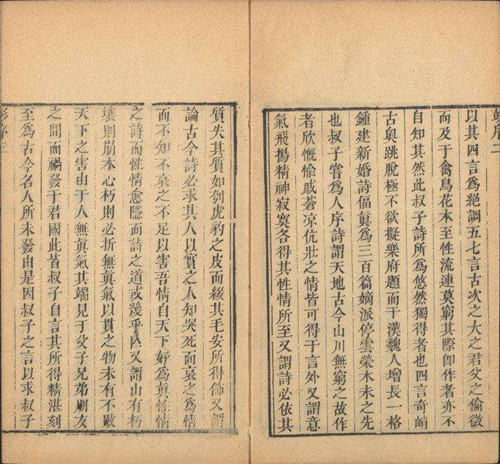 以其四言為絕調五七言古次之大之君父之倫微
而及于禽鳥花木至性流連莫窮其際即作者亦不
自知其然此叔子詩所為悠然獨得者也四言奇峭
古奧跳脫極不欲擬樂府題而于漢魏人增長一格
鍾建新婚詩偪真為三百篇嫡派停雲榮木未之先
也叔子嘗為人序詩謂天地古今山川無窮之故作
者欣慨愉戚蒼涼伉壯之情皆可得于言外又謂意
氣飛揚精神寂寞各得其性情所至又謂詩必依其
質失其質如刳虎豹之皮而綴其毛安所得飾又謂
論古今詩必求其人以實之人知哭死而哀之為情
而不知不哀之不足以害吾情自天下好為真情
之詩而性情愈隱而詩之道或幾乎又謂山有朽
壤則崩木心朽則必折無真氣以貫之物未有不敝
天下之害由于人無真氣其端見于父子兄弟朋友
之間而禍發于君國此皆叔子自言其所得精湛刻
至為古今名人所未發由是因叔子之言以求叔子